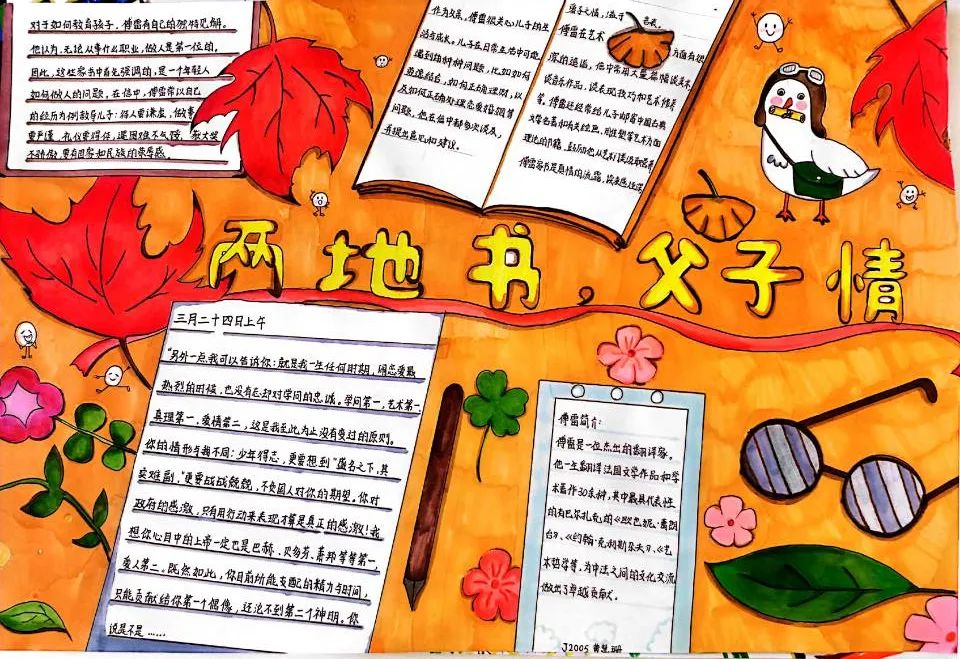 对于如何教育孩子，傅雷有自己的独特见解。
他认为，无论从事什么职业，做人是第一位的。
因此，这些家书中首先强调的，是一个年轻人
如何做人的问题，在信中，傅雷常以自己
的经历为例教导儿子：待人要谦虚，做事
要严谨，礼仪要得体，遇困难不气馁，获大奖
不骄傲，要有国家和民族的荣辱感。
作为父亲，傅雷很关心儿子的生
活与成长。儿子在日常生活中可能
遇到各种各样问题，比如如何
劳逸结合，如何正确理财，以
及如何正确处理恋爱婚姻等
问题，他在信中都多次谈及，
并提出意见和建议。
傅雷在艺术 方面有很
深的造诣，他中常用大量篇幅谈美术
谈音乐作品，谈表现技巧和艺术修养
等。傅雷还经常给儿子邮寄中国古典
文学名著和有关绘画、雕塑等艺术方面
理论的书籍，鼓励他从艺术
傅雷家书是真情的流露，
两地书，父子情
三月二十四日上午
“另外一点，我可以告诉你：就是我一生任何时期，闹恋爱最
热烈的时候，也没有忘却对学问的忠诚。学问第一，艺术第一，
真理第一，爱情第二，这是我至此为止没有变过的原则。
你的情形与我不同：少年得志，更要想到“盛名之下，其
实难副，”更要战战兢兢，不负国人对你的期望。你对
政府的感激，只有用行动来表现才算是真正的感激！我
想你心目中的上帝一定也是巴赫、贝多芬、萧邦等等第一，
爱人第二。既然如此，你目前所能支配的精力与时间，
只能贡献给你第一个偶像，还论不到第二个神明。你
说是不是……
傅雷简介：
傅雷是一位杰出的翻译家。
他一生翻译法国文学作品和学
术著作30多种，其中最具代表性
的有巴尔扎克的《欧也妮·葛朗
台》、《约翰·克利斯朵夫》、《艺
术哲学》等，为中法之间的文化交流
做出了卓越贡献。
J2005 黄慧珊